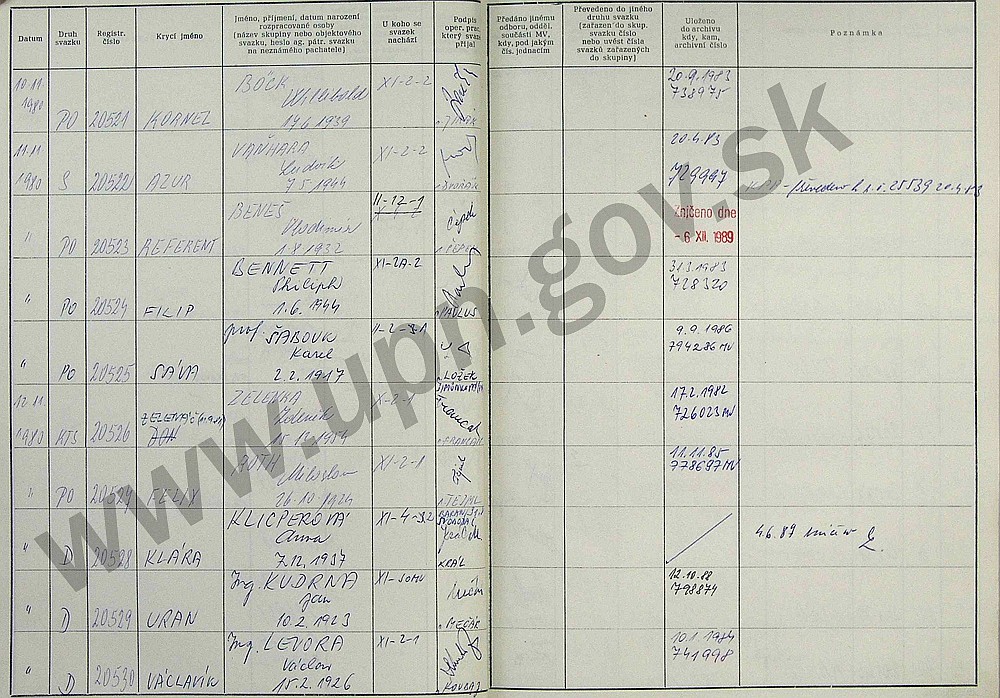 Datum
Druh svazku
Registr. číslo
Krycí jméno
Jméno, příjmení, datum narození
rozpracované osoby
(název skupiny nebo objektového
svazku, heslo ag. pátr. svazku
na neznámého pachatele)
U koho se
svazek
nachází
Podpis
oper. prac.
který svaz.
přijal
Předáno jinému
odboru, odděl.
součásti MV,
kdy, pod jakým
čís. jednacím
Převedeno do jiného
druhu svazku
(zařazen do skup.
svazku číslo
nebo uvést čísla
svazků zařazených
do skupiny)
Uloženo
do archivu
kdy, kam,
archivní číslo
Poznámka
10.11. 1980 PO 20521 KORNEL
BÖCK
Willibald
17.6.1939
XI-2-2
20.9.1983
738975
11.11 1980 S 20522 AZUR
VAŇHARA
Ludvík
7.5.1944
XI-2-2
20.4.83
729997
" PO 20523 REFERENT
BENEŠ
Vladimír
1.8.1932
II-12-1
Zničeno dne
- 6 XII. 1989
" PO 20524 FILIP
BENNETT
Philiph
1.6.1944
XI-2A-2
PAVLUS
31.3.1983
728320
" PO 20525 SÁVA
prof. ŠABOUK
Karel
2.2.1917
LOŽEK
9.9.1986
794286 MV
12.11. 1980 KTS 20526
ZELENKA
Zdeněk
X-2-1
17.2.1982
726023 MV
" PO 20527 FELIX
ROTH
Miloslav
26.10.1924
XI-2-1
11.11.85
778697 MV
" D 20528 KLÁRA
KLICPEROVÁ
Anna
7.12.1937
KRÁL
4.6.87
" D 20529 URAN
Ing. KUDRNA
Jan
10.2.1923
MEČÁR
12.10.88
798874
" D 20530 VÁCLAVÍK
Ing. LEVORA
Václav
15.2.1926
XI-2-1
10.1.1984
741998
www.upn.gov.sk